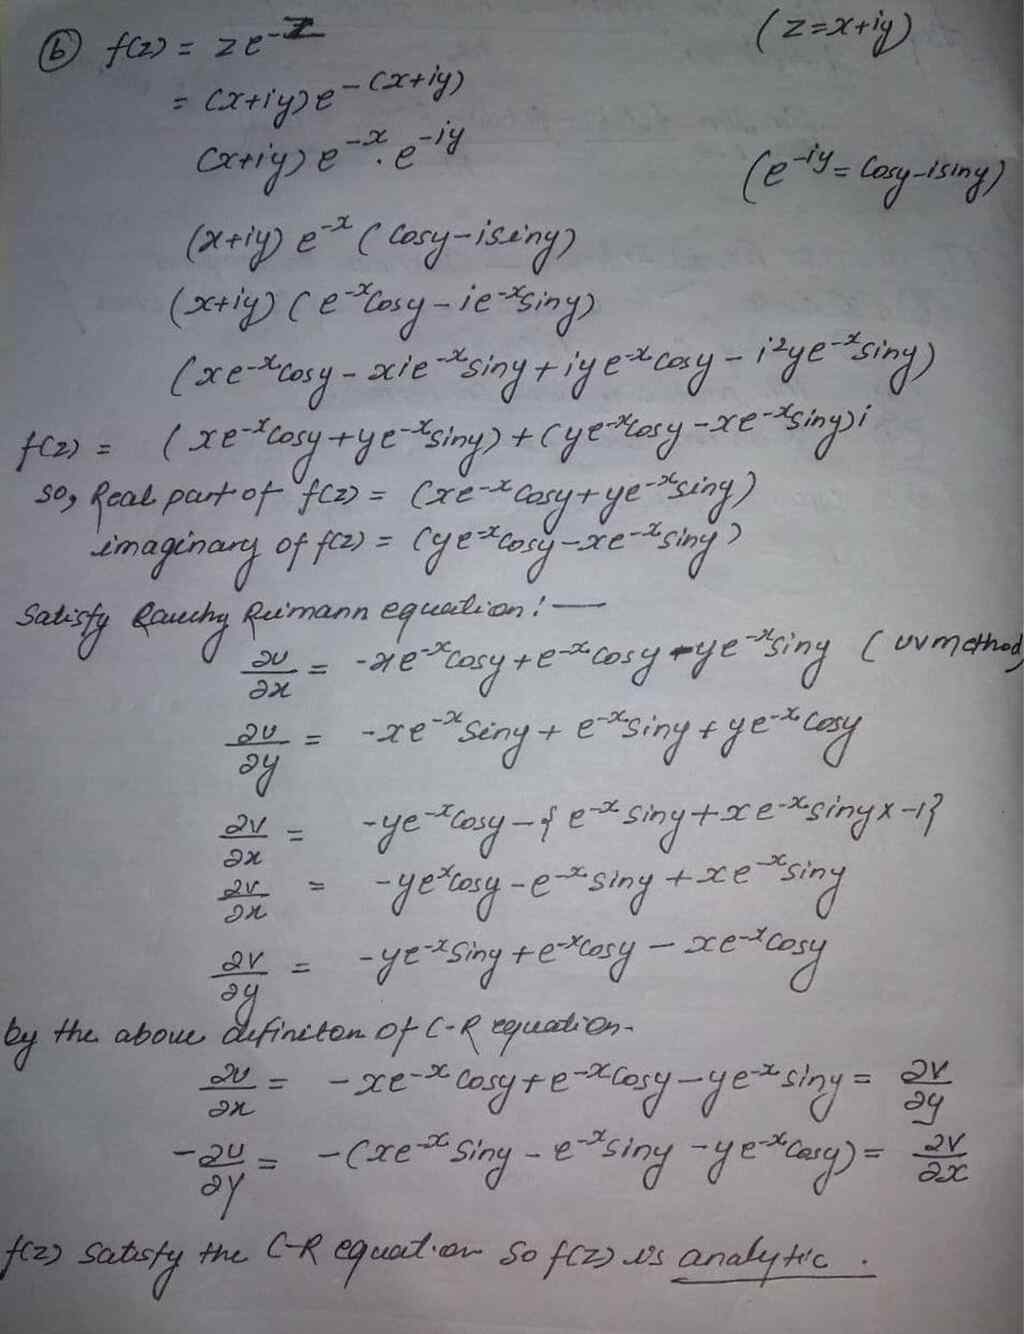 (b) f(z) = z e^-z (z=x+iy)
= (x+iy)e^-(x+iy)
(x+iy)e^-x . e^-iy
(e^-iy = Cosy-isiny)
(x+iy) e^-x (Cosy-isiny)
(x+iy) (e^-xCosy - ie^-xsiny)
(xe^-xcosy - xie^-xsiny + iye^-xcosy - i²ye^-xsiny)
f(z) = (xe^-xCosy+ye^-xsiny) + (ye^-xCosy - xe^-xsiny)i
so, Real part of f(z) = (xe^-xCosy+ye^-xsiny)
imaginary of f(z) = (ye^-xCosy-xe^-xsiny)
Satisfy Cauchy Reimann equation! —
∂u/∂x = -xe^-xCosy+e^-xcosy - ye^-xsiny (uv method)
∂u/∂y = -xe^-xSiny + e^-xsiny + ye^-xCosy
∂v/∂x = -ye^-xCosy - { e^-x siny + xe^-x siny x -1}
∂v/∂x = -ye^xCosy - e^-xsiny + xe^-xsiny
∂v/∂y = -ye^-xSiny + e^-xCosy - xe^-xCosy
by the above definiton of C-R equation-
∂u/∂x = -xe^-xCosy+e^-xCosy-ye^-xsiny = ∂v/∂y
-∂u/∂y = -(xe^-xSiny - e^-xsiny - ye^-xCosy) = ∂v/∂x
f(z) Satisfy the C-R equation So f(z) is analytic .